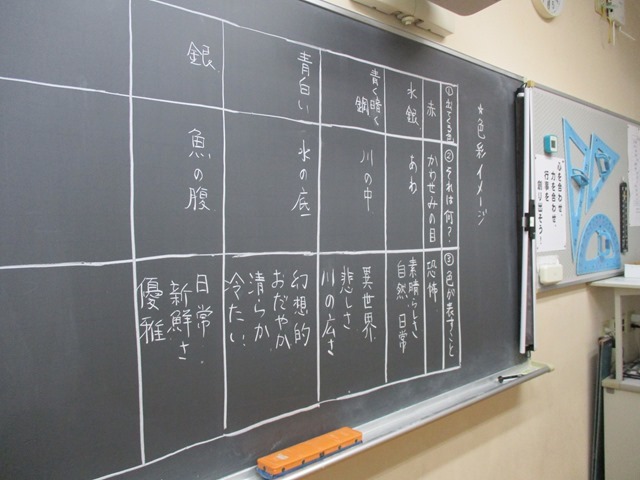 ★色彩イメージ
①出てくる色
②それは何?
③色が表すこと
赤
かわせみの目
恐怖
水銀
あわ
素晴らしさ
自然、日常
青く暗く
鋼
川の中
異世界
悲しさ
川の広さ
青白い
水の底
幻想的
おだやか
清らか
冷たい
銀
魚の腹
日常
新鮮さ
優雅
心を合わせ
力を合わせ
行事を
創り出そう!